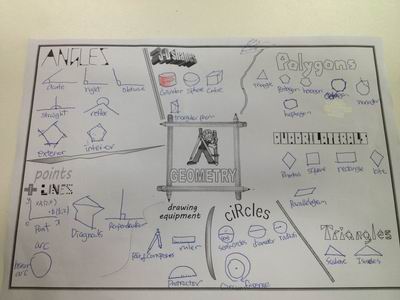 ANGLES
acute
right
obtuse
straight
reflex
exterior
interior
3D Shapes
Cylinder
Sphere
Cube
triangular prism
Polygons
triangle
Pentagon
hexagon
heptagon
QUADRILATERALS
Rhombus
square
rectangle
kite
Parallelogram
GEOMETRY
points
+ LINES
Point
Diagonals
Perpendicular
arc
drawing
equipment
Pair of compasses
ruler
Protractor
CiRcles
semicircles
diameter
radius
Triangles
Scalene
Isosceles